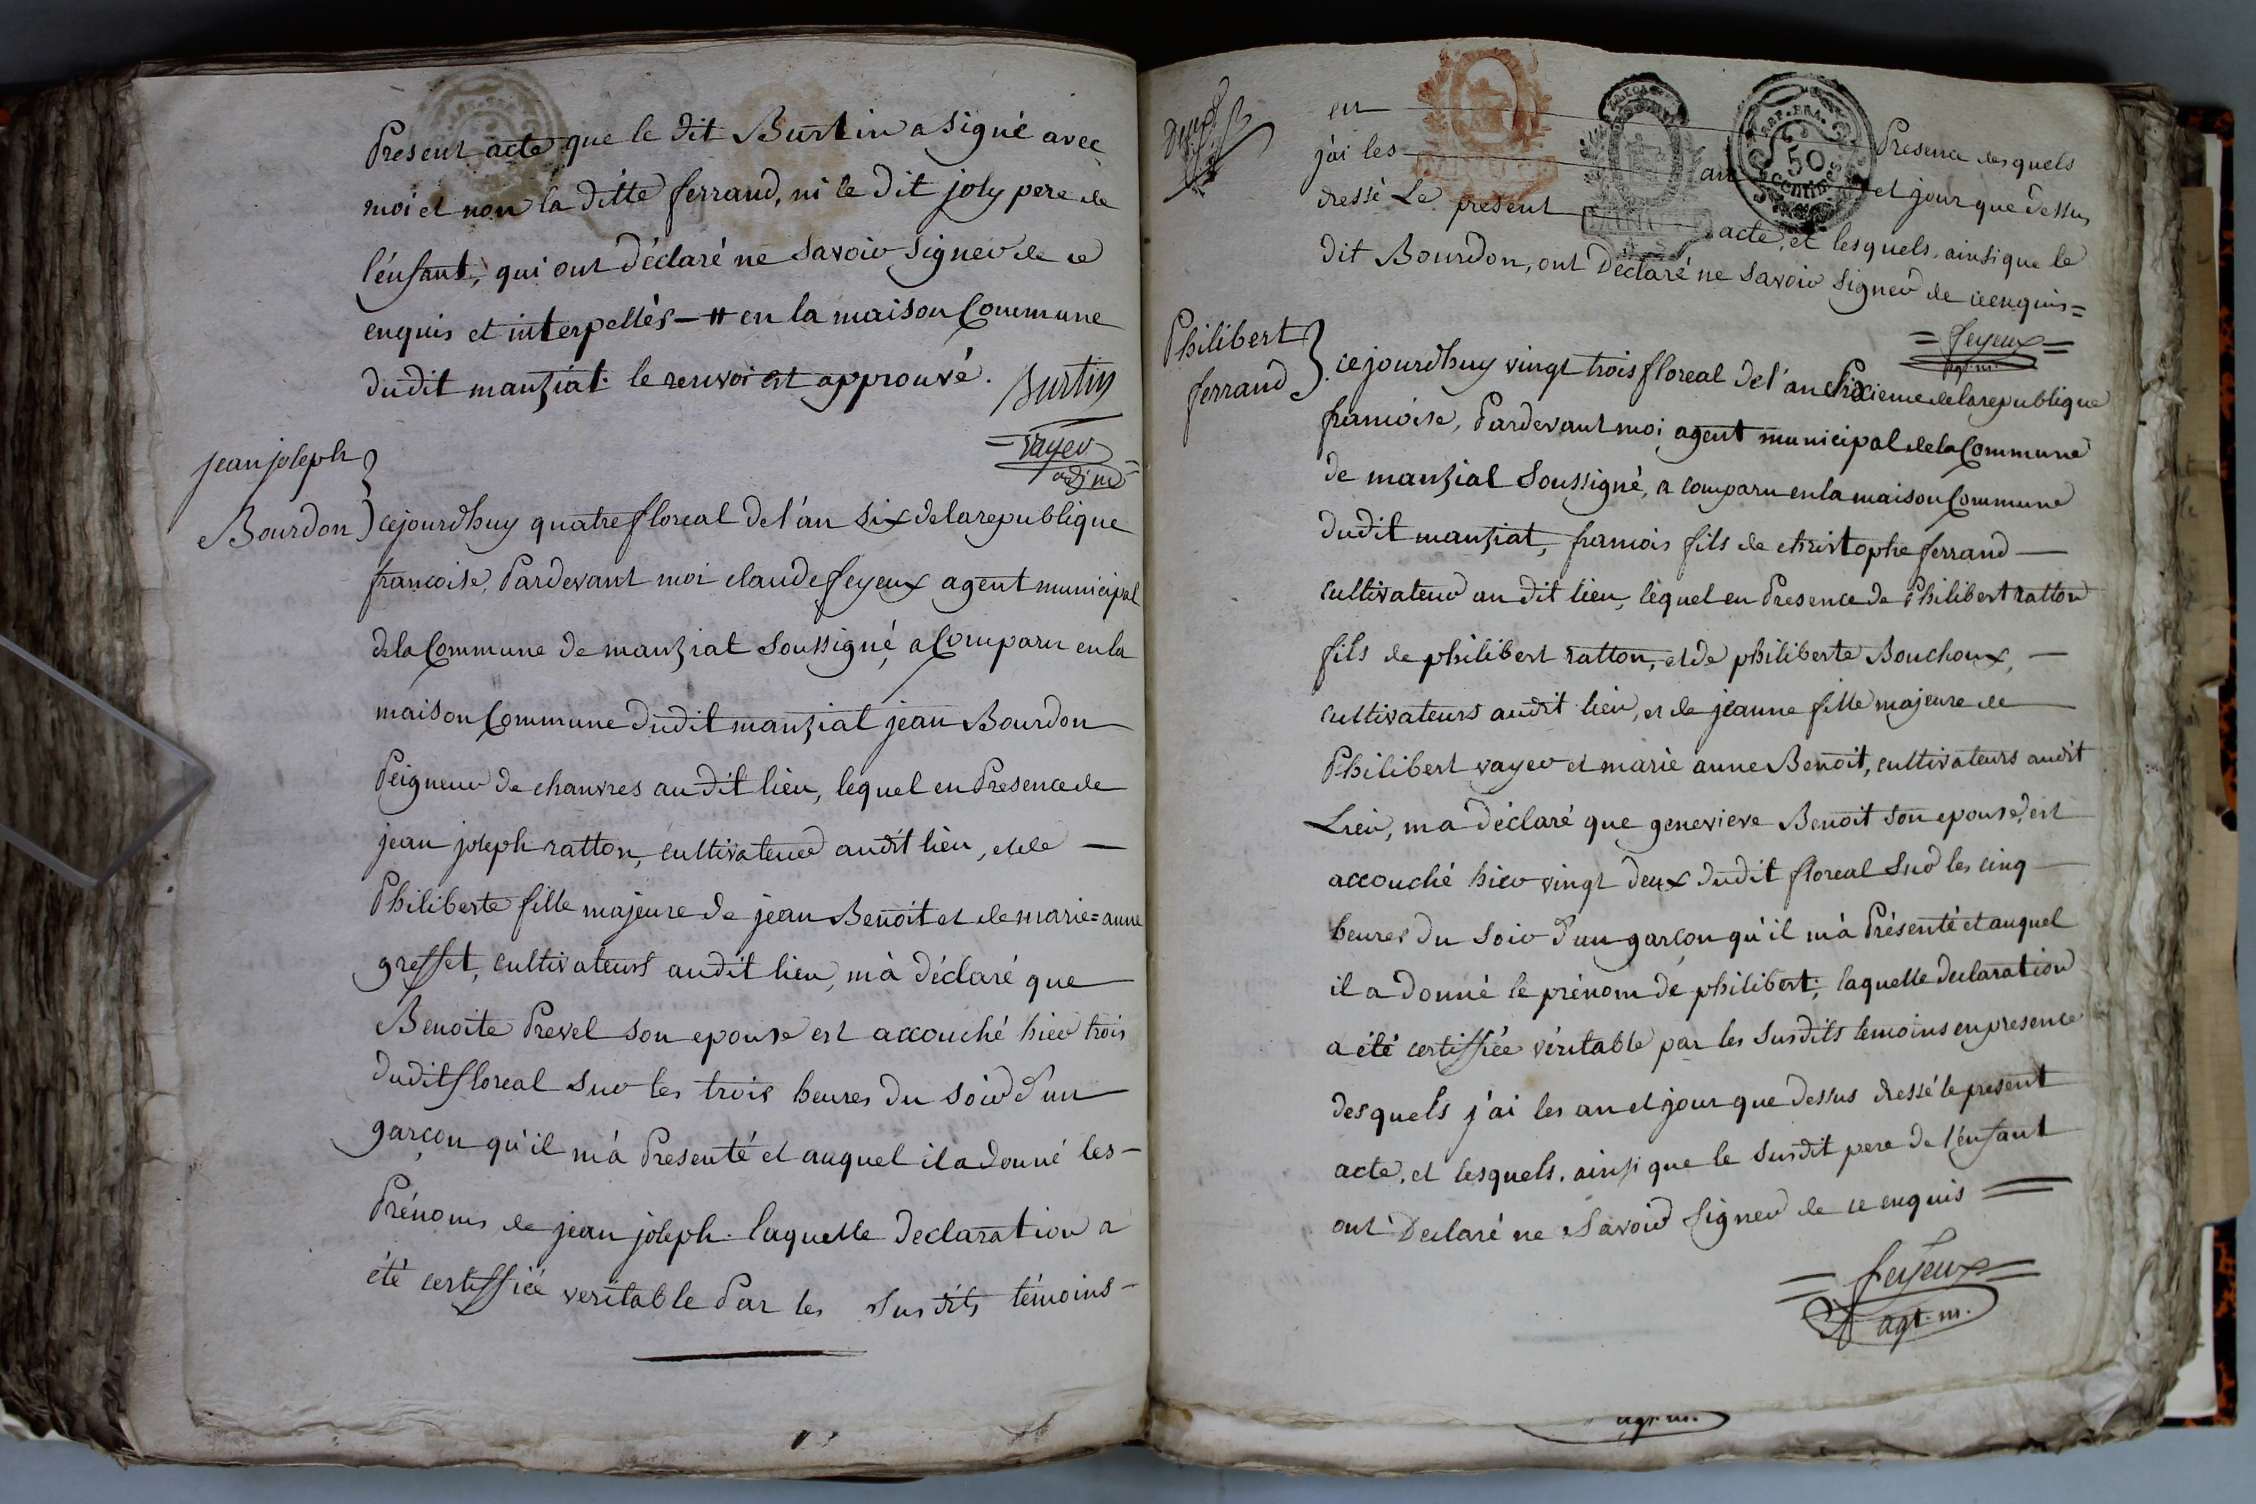 Présent acte que le dit Burtin a signé avec
moi et non la ditte ferrand, ni le dit joly pere de
l'énfant, qui ont déclaré ne savoir signer de ce
enquis et interpellés – # en la maison Commune
dudit manziat. le renvoi est approuvé.
Burtin
vayer
adjnd
jean joseph
Bourdon
cejourdhuy quatre floreal de l'an six de la republique
francoise, Pardevant moi claude feyeux agent municipal
de la Commune de manziat soussigné, a Comparu en la
maison Commune dudit manziat jean Bourdon
Peigneur de chanvres au dit lieu, lequel en Presence de
jean joseph ratton, cultivateur audit lieu, et de —
Philiberte fille majeure de jean Benoit et de marie=anne
greffet, cultivateurs audit lieu, m'à déclaré que
Benoite Prevel son epouse est accouché hier trois
dudit floreal sur les trois heures du soir d'un
garçon qu'il m'à Presenté et auquel il a donné les –
Prénoms de jean joseph. laquelle declaration a
été certiffiée veritable Par les susdits témoins –
en Presence desquels
j'ai les an et jour que dessus
dressé Le present acte, et lesquels, ainsi que le
dit Bourdon, ont déclaré ne savoir signer de ce enquis =
REP. FRA.
50
CENTIMES
= feyeux =
agt. m.
Philibert
ferrand
cejourdhuy vingt trois floreal de l'an sixieme de la republique
francoise, Pardevant moi agent municipal de la Commune
de manzial soussigné, a comparu en la maison Commune
dudit manziat, francois fils de christophe ferrand —
cultivateur au dit lieu, lequel en Presence de Philibert ratton
fils de philibert ratton, et de philiberte Bouchoux, —
cultivateurs audit lieu, et de jeanne fille majeure de
Philibert vayer et marie anne Benoit, cultivateurs audit
Lieu, m'a déclaré que genevieve Benoit son epouse, est
accouché hier vingt deux dudit floreal sur les cinq
heures du soir d'un garçon qu'il m'à Présenté et auquel
il a donné le prénom de philibert; laquelle declaration
a été certiffiée véritable par les susdits temoins en presence
desquels j'ai les an et jour que dessus dressé le present
acte, et lesquels, ainsi que le susdit pere de l'énfant
ont declaré ne savoir signer de ce enquis =
= feyeux =
agt. m.
agt. m.